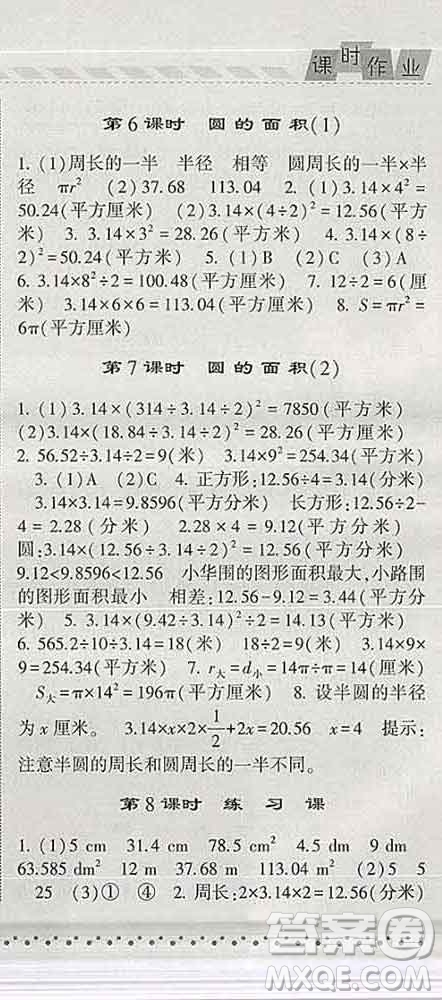 课时作业
第6课时 圆的面积(1)
1. (1)周长的一半 半径 相等 圆周长的一半×半
径 πr² (2)37.68 113.04 2. (1)3.14×4²=
50.24(平方厘米) (2)3.14×(4÷2)²=12.56(平
方米) 3. 3.14×3²=28.26(平方米) 4. 3.14×(8÷
2)²=50.24(平方米) 5. (1)B (2)C (3)A
6. 3.14×8²÷2=100.48(平方米) 7. 12÷2=6(厘
米) 3.14×6×6=113.04(平方厘米) 8. S=πr²=
6π(平方厘米)
第7课时 圆的面积(2)
1. (1)3.14×(314÷3.14÷2)²=7850(平方米)
(2)3.14×(18.84÷3.14÷2)²=28.26(平方米)
2. 56.52÷3.14÷2=9(米) 3.14×9²=254.34(平方米)
3. (1)A (2)C 4. 正方形:12.56÷4=3.14(分米)
3.14×3.14=9.8596(平方分米) 长方形:12.56÷2-
4=2.28(分米) 2.28×4=9.12(平方分米)
圆:3.14×(12.56÷3.14÷2)²=12.56(平方分米)
9.12<9.8596<12.56 小华围的图形面积最大,小路围
的图形面积最小 相差:12.56-9.12=3.44(平方分
米) 5. 3.14×(9.42÷3.14)²÷2=14.13(平方米)
6. 565.2÷10÷3.14=18(米) 18÷2=9(米) 3.14×9×
9=254.34(平方米) 7. r大=d小=14π÷π=14(厘米)
S大=π×14²=196π(平方厘米) 8. 设半圆的半径
为x厘米。 3.14×x×2×1/2+2x=20.56 x=4 提示:
注意半圆的周长和圆周长的一半不同。
第8课时 练习课
1. (1)5 cm 31.4 cm 78.5 cm² 4.5 dm 9 dm
63.585 dm² 12 m 37.68 m 113.04 m² (2)5 5
25 (3)① ④ 2. 周长:2×3.14×2=12.56(分米)
答案圈
MXQE.COM